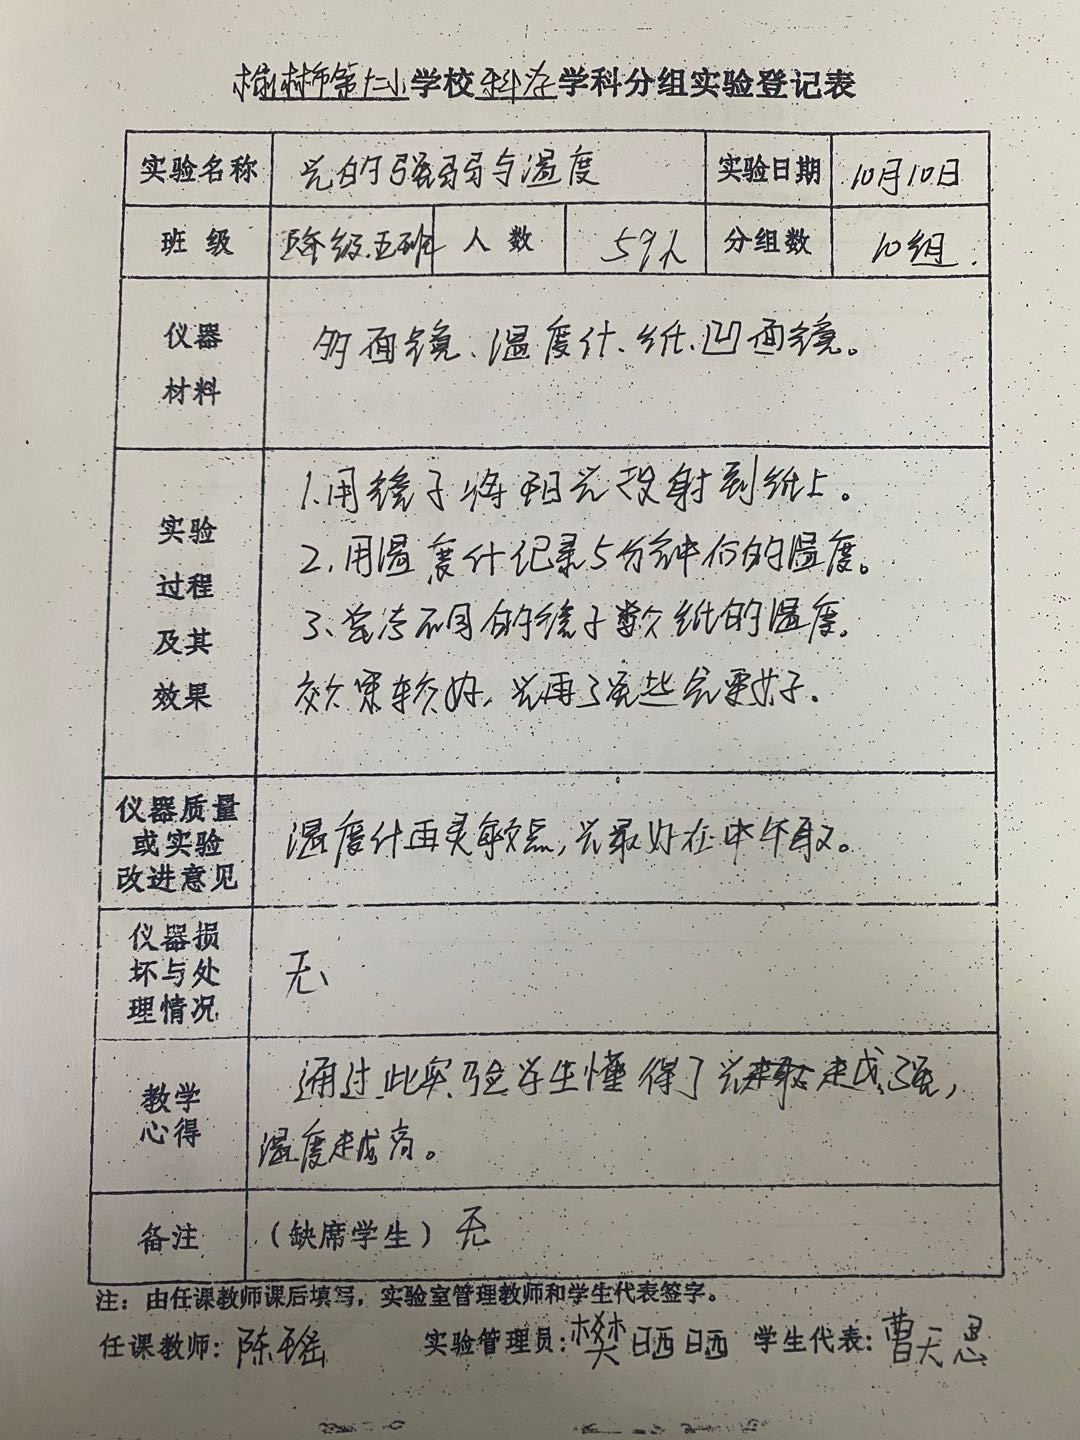 榆林市第十二小学校科学学科分组实验登记表
实验名称 光的强弱与温度 实验日期 10月10日
班级 五年级.五班 人数 59人 分组数 10组.
仪器材料 多面镜、温度计、纸、凹面镜。
实验过程及其效果
1.用镜子将阳光投射到纸上。
2.用温度计记录5分钟后的温度。
3、不同的镜子数纸的温度。
效果较好,光再强些会更好.
仪器质量或实验改进意见 温度计再灵敏点,光最好在中午取。
仪器损坏与处理情况 无、
教学心得 通过此实验学生懂得了光越强,
温度越高。
备注 (缺席学生) 无
注:由任课教师课后填写,实验室管理教师和学生代表签字。
任课教师:陈瑶 实验管理员:樊晒晒 学生代表:曹天思